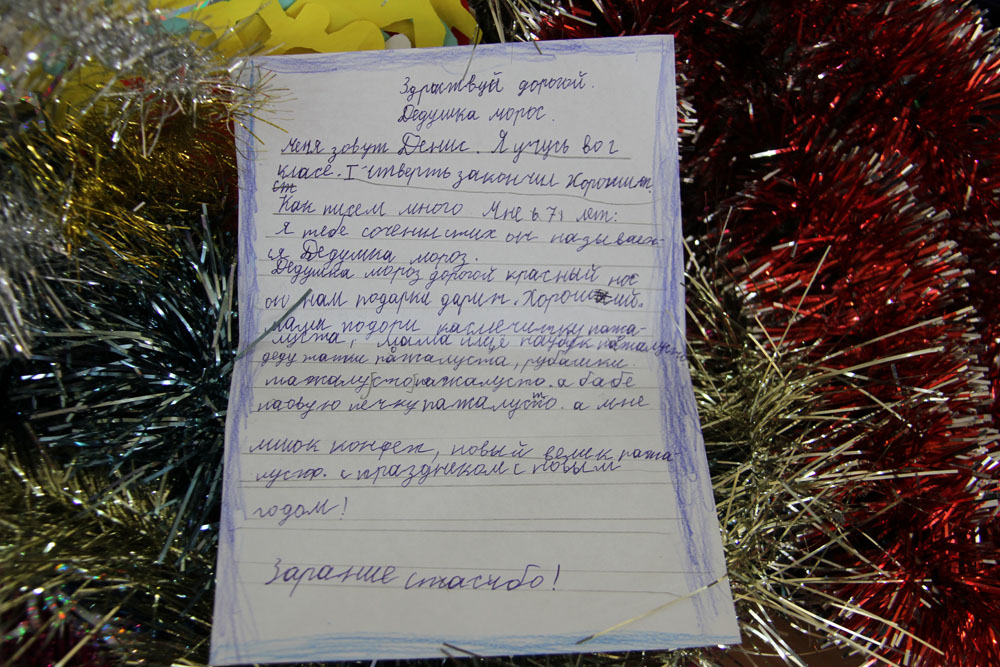 Здраствуй дорогой.
Дедушка морос.
Меня зовут Денис. Я учусь во 2
класе. I четверть закончил Хорошист.
Как писем много мне 6. 7, лет:
я тебе сочени стих он называет-
ся Дедушка мороз.
Дедушка мороз дорогой красный нос
он нам подарки дарит. Хороший.
маме подори касмечитку пажа-
луста, мама ище ноубук пажалуста
деду тапки пажалуста, рубашки.
пажалусто. а бабе
новую печку пажалусто. а мне
мишок конфет, новый велик пажа-
луста. с праздником с новым
годом!
Зарание спасибо!